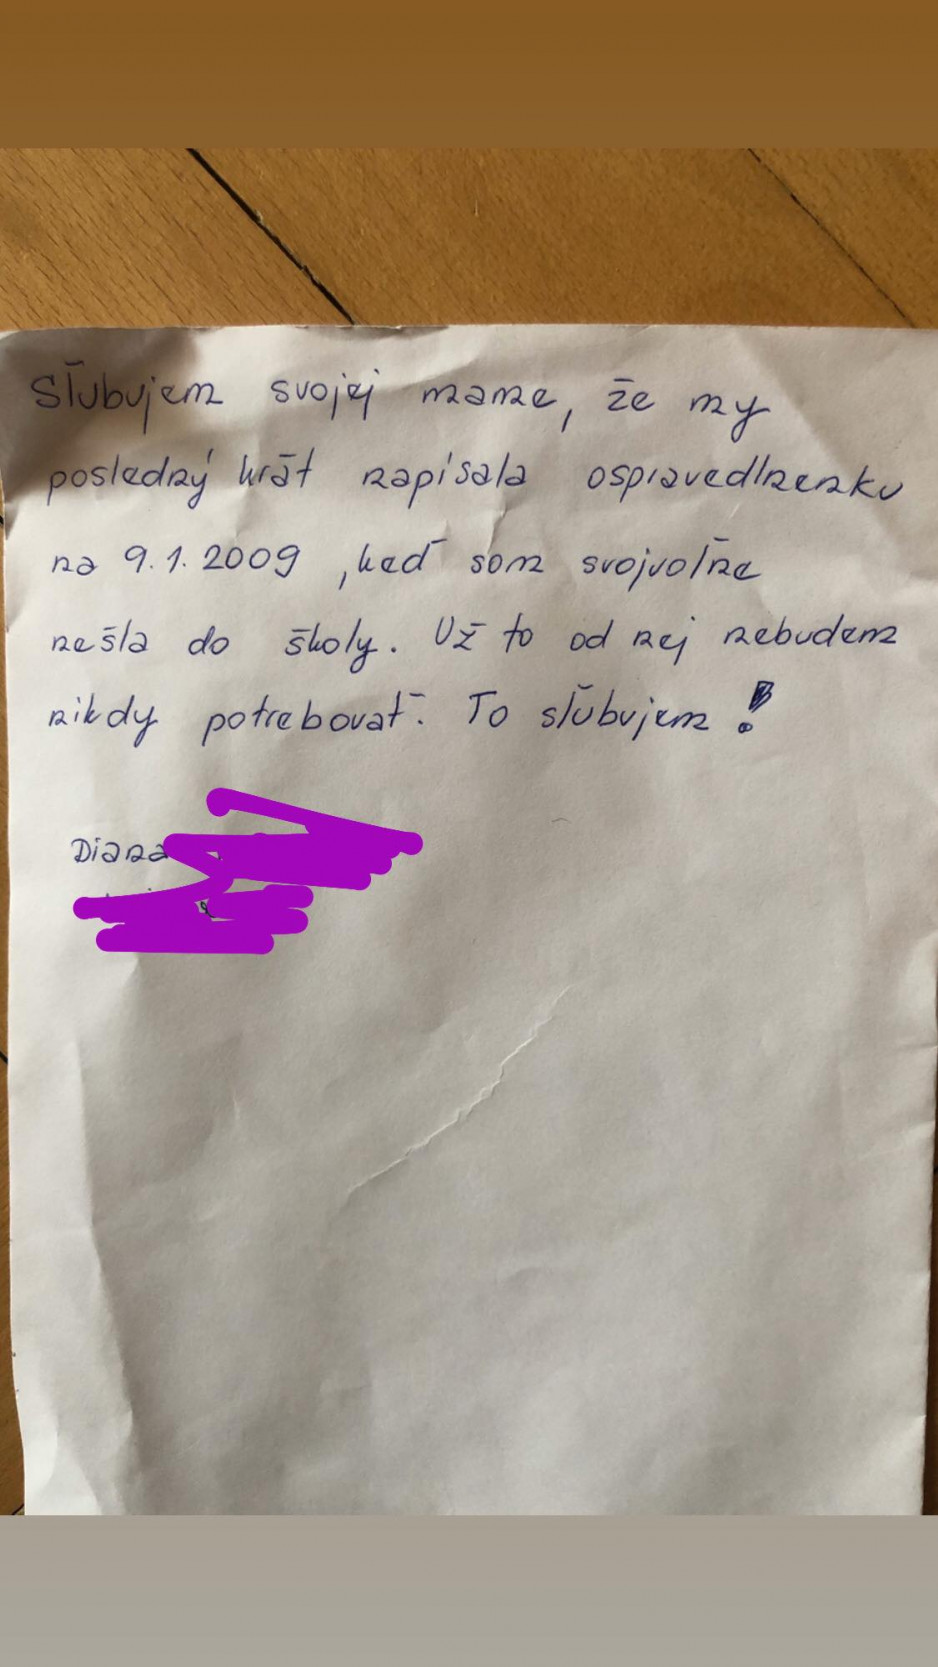 Sľubujem svojej mame, že my
posledný krát napísala ospravedlnenku
na 9.1.2009 ,keď som svojvoľne
nešla do školy. Už to od nej nebudem
nikdy potrebovať. To sľubujem!
Diana